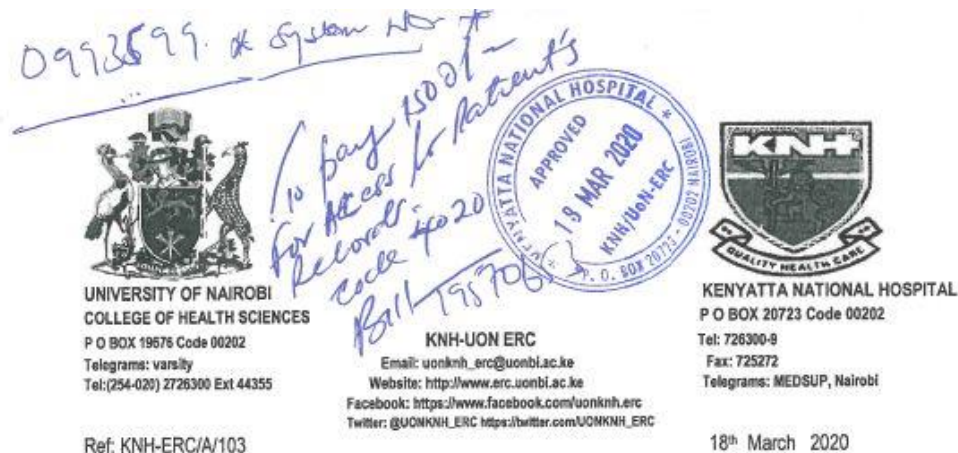 0993599. * System No *
To pay 1500/-
For Access to Patient's
Records
code 4020
Bill
KENYATTA NATIONAL HOSPITAL *
APPROVED
19 MAR 2020
KNH/UoN-ERC
P. O. BOX 20723 - 00202 NAIROBI
KNH
QUALITY HEALTH CARE
UNIVERSITY OF NAIROBI
COLLEGE OF HEALTH SCIENCES
P O BOX 19676 Code 00202
Telegrams: varsity
Tel:(254-020) 2726300 Ext 44355
KNH-UON ERC
Email: uonknh_erc@uonbi.ac.ke
Website: http://www.erc.uonbi.ac.ke
Facebook: https://www.facebook.com/uonknh.erc
Twitter: @UONKNH_ERC https://twitter.com/UONKNH_ERC
KENYATTA NATIONAL HOSPITAL
P O BOX 20723 Code 00202
Tel: 726300-9
Fax: 725272
Telegrams: MEDSUP, Nairobi
Ref: KNH-ERC/A/103
18th March 2020